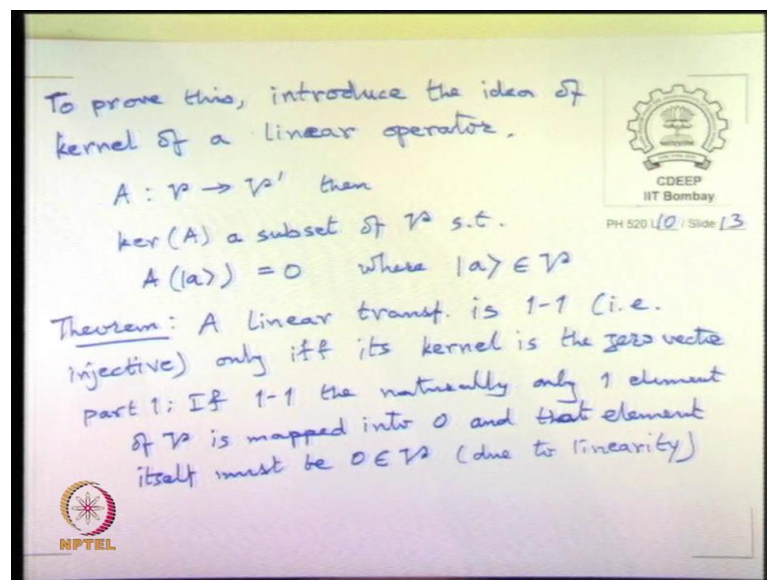 To prove this, introduce the idea of
kernel of a linear operator.
A : V → V' then
ker(A) a subset of V s.t.
A(|a>) = 0 where |a> ∈ V
Theorem: A linear transf. is 1-1 (i.e.
injective) only iff its kernel is the zero vector
part 1: If 1-1 the naturally only 1 element
of V is mapped into 0 and that element
itself must be 0 ∈ V (due to linearity)
CDEEP
IIT Bombay
PH 520 L10 / Slide 13
NPTEL